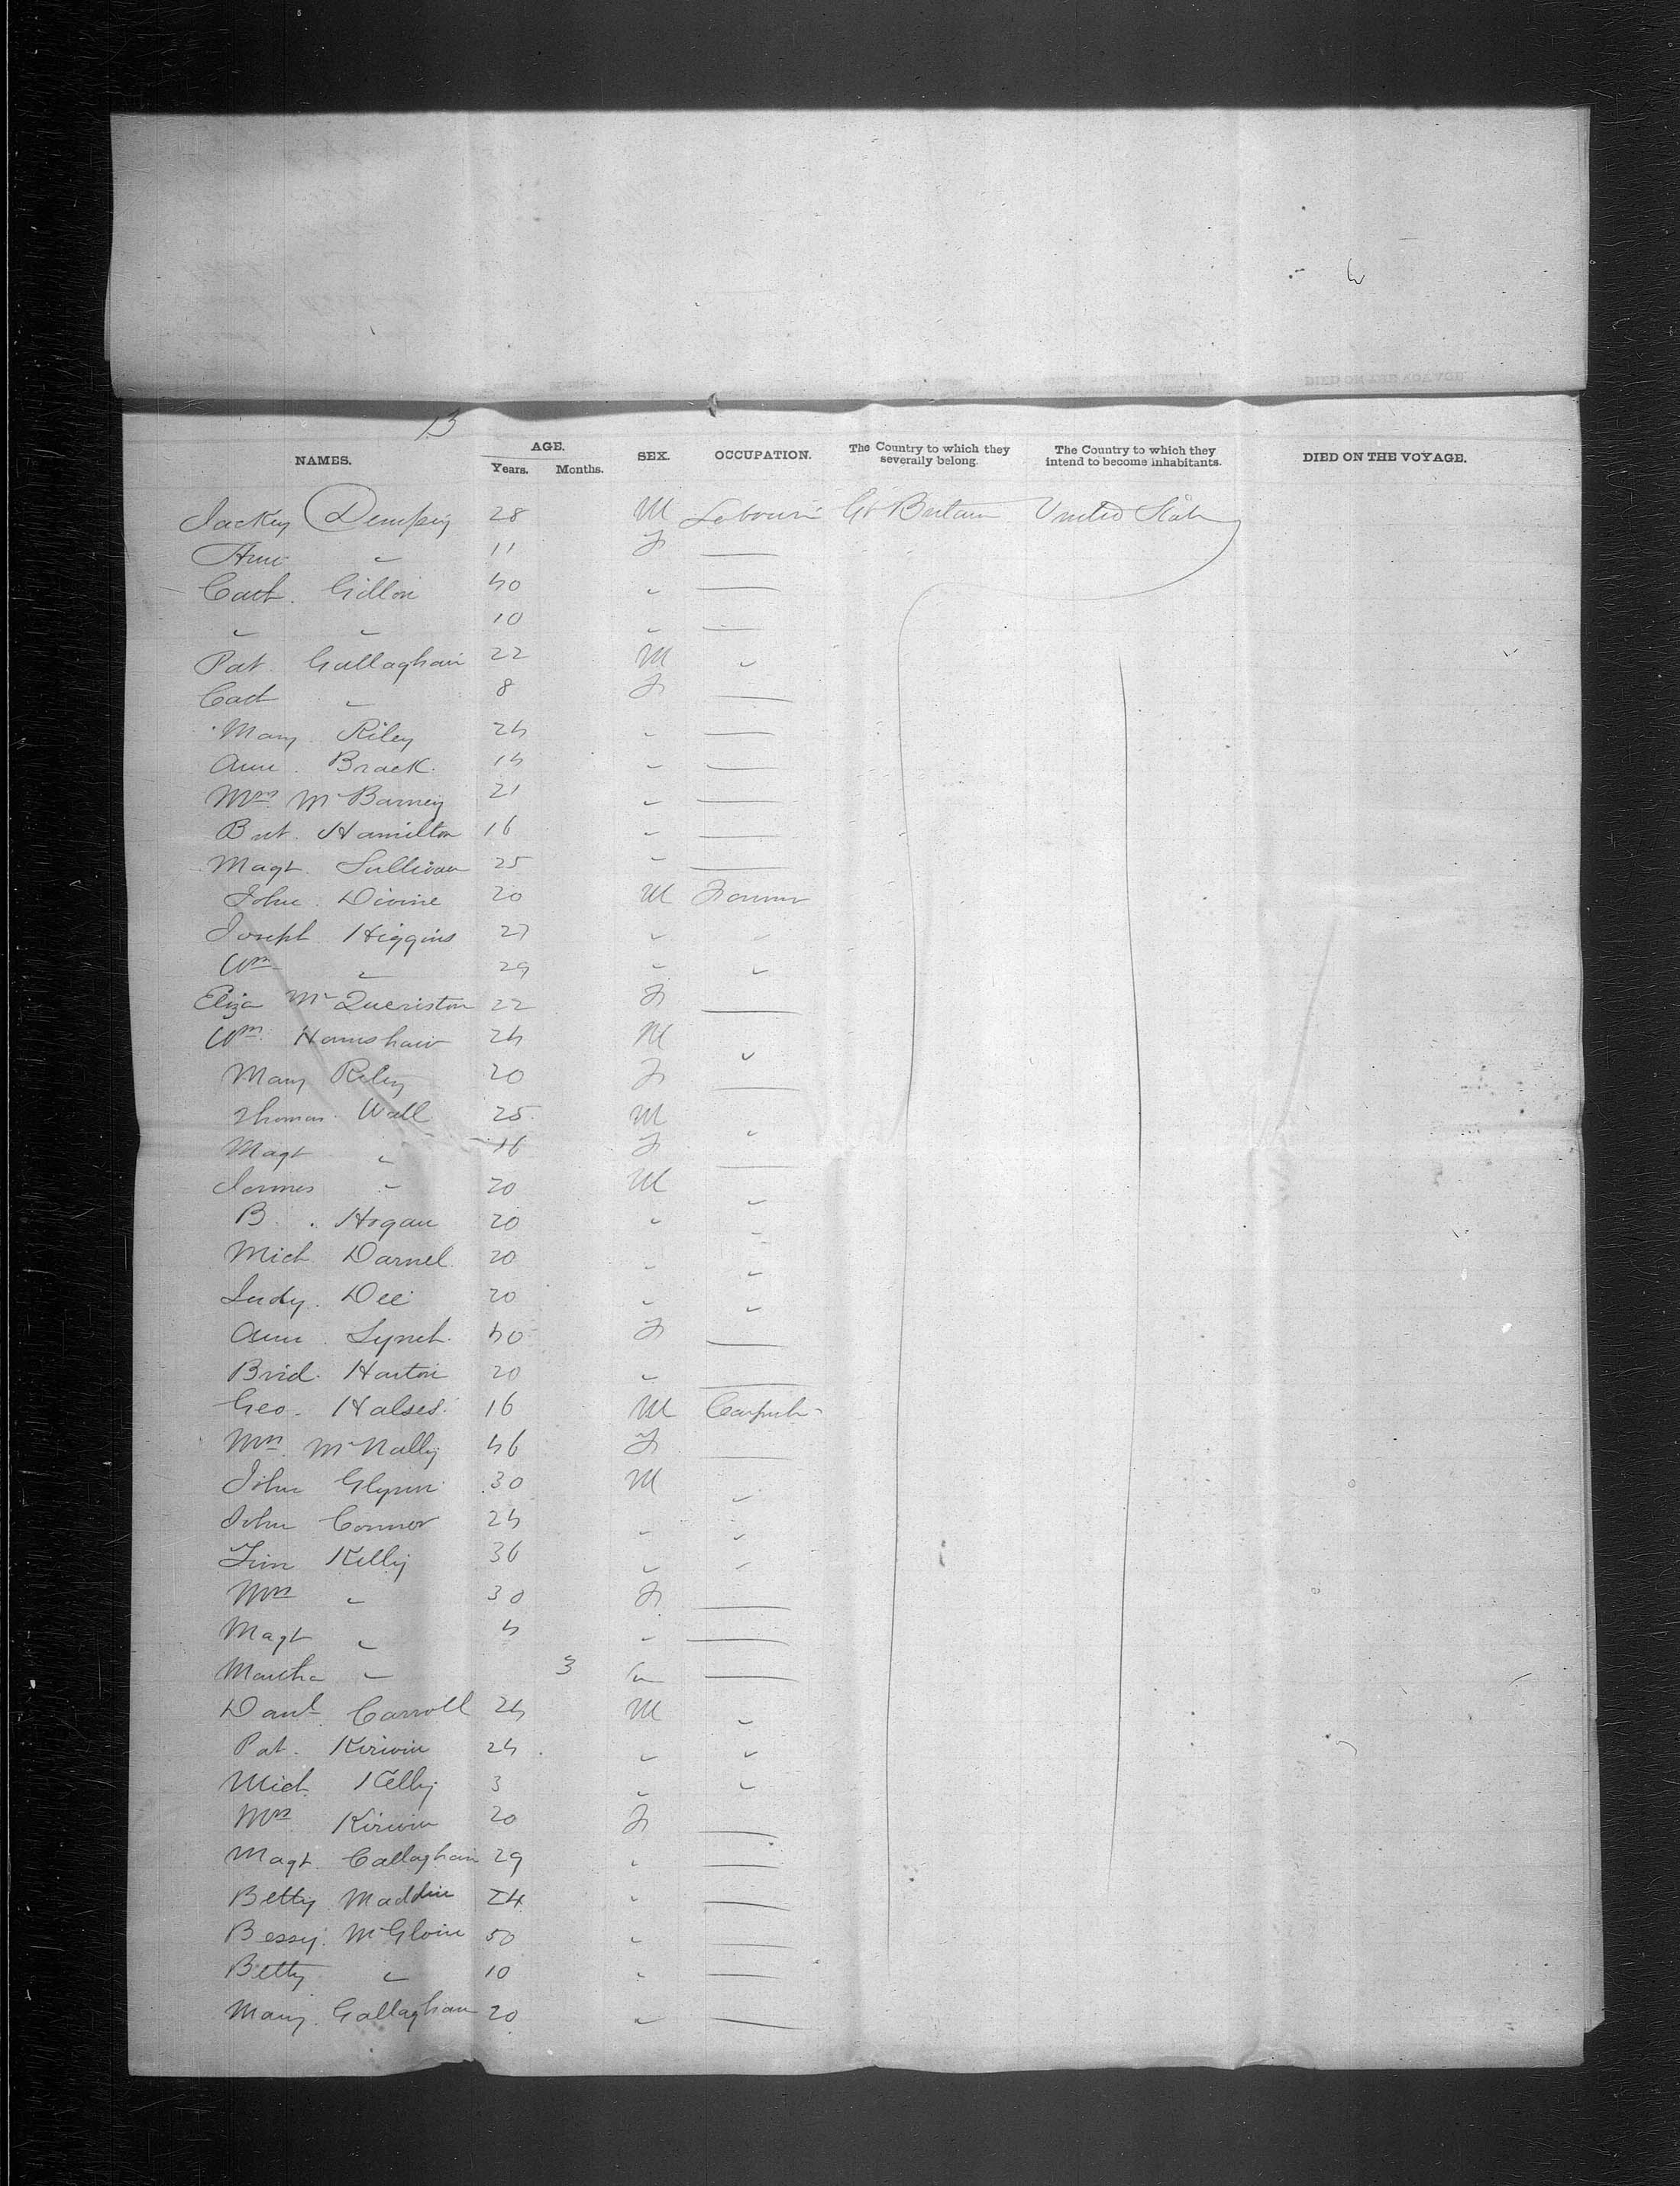 13
NAMES. AGE. Years. Months. SEX. OCCUPATION. The Country to which they severally belong. The Country to which they intend to become inhabitants. DIED ON THE VOYAGE.
Jackey Dempsey 28 M Labourer Gt Britain United States
Ann " 11 F —
Cath. Gillon 40 " —
" " 10 " —
Pat Gallaghan 22 M "
Cath " 8 F —
Mary Riley 24 " —
Ann. Brack. 14 " —
Mrs. McBarney 21 " —
Brt. Hamilton 16 " —
Magt. Sullivan 25 " —
John. Divine 20 M Farmer
Joseph Higgins 27 " "
Wm " 29 " "
Eliza McQueriston 22 F —
Wm. Hamshaw 24 M "
Mary Riley 20 F —
Thomas. Wall 25 M "
Magt " 16 F —
James " 20 M "
B. Hogan 20 " "
Mich Darnel. 20 " "
Judy. Dee 20 " "
Ann. Lynch. 40 F —
Brid. Hartin 20 " —
Geo. Halses. 16 M
Mrs. McNally 46 F —
John Glynn 30 M "
John Connor 24 " "
Tim Kelly 36 " "
Mrs " 30 F —
Magt " 4 " —
Martha " 3 " —
Danl. Carroll 24 M "
Pat. Kirwin 24 " "
Mich. Kelly 3 " "
Mrs Kirwin 20 F —
Magt. Callaghan 29 " —
Betty Maddin 24 " —
Bessy. McGloin 50 " —
Betty " 10 " —
Mary. Gallaghan 20 " —